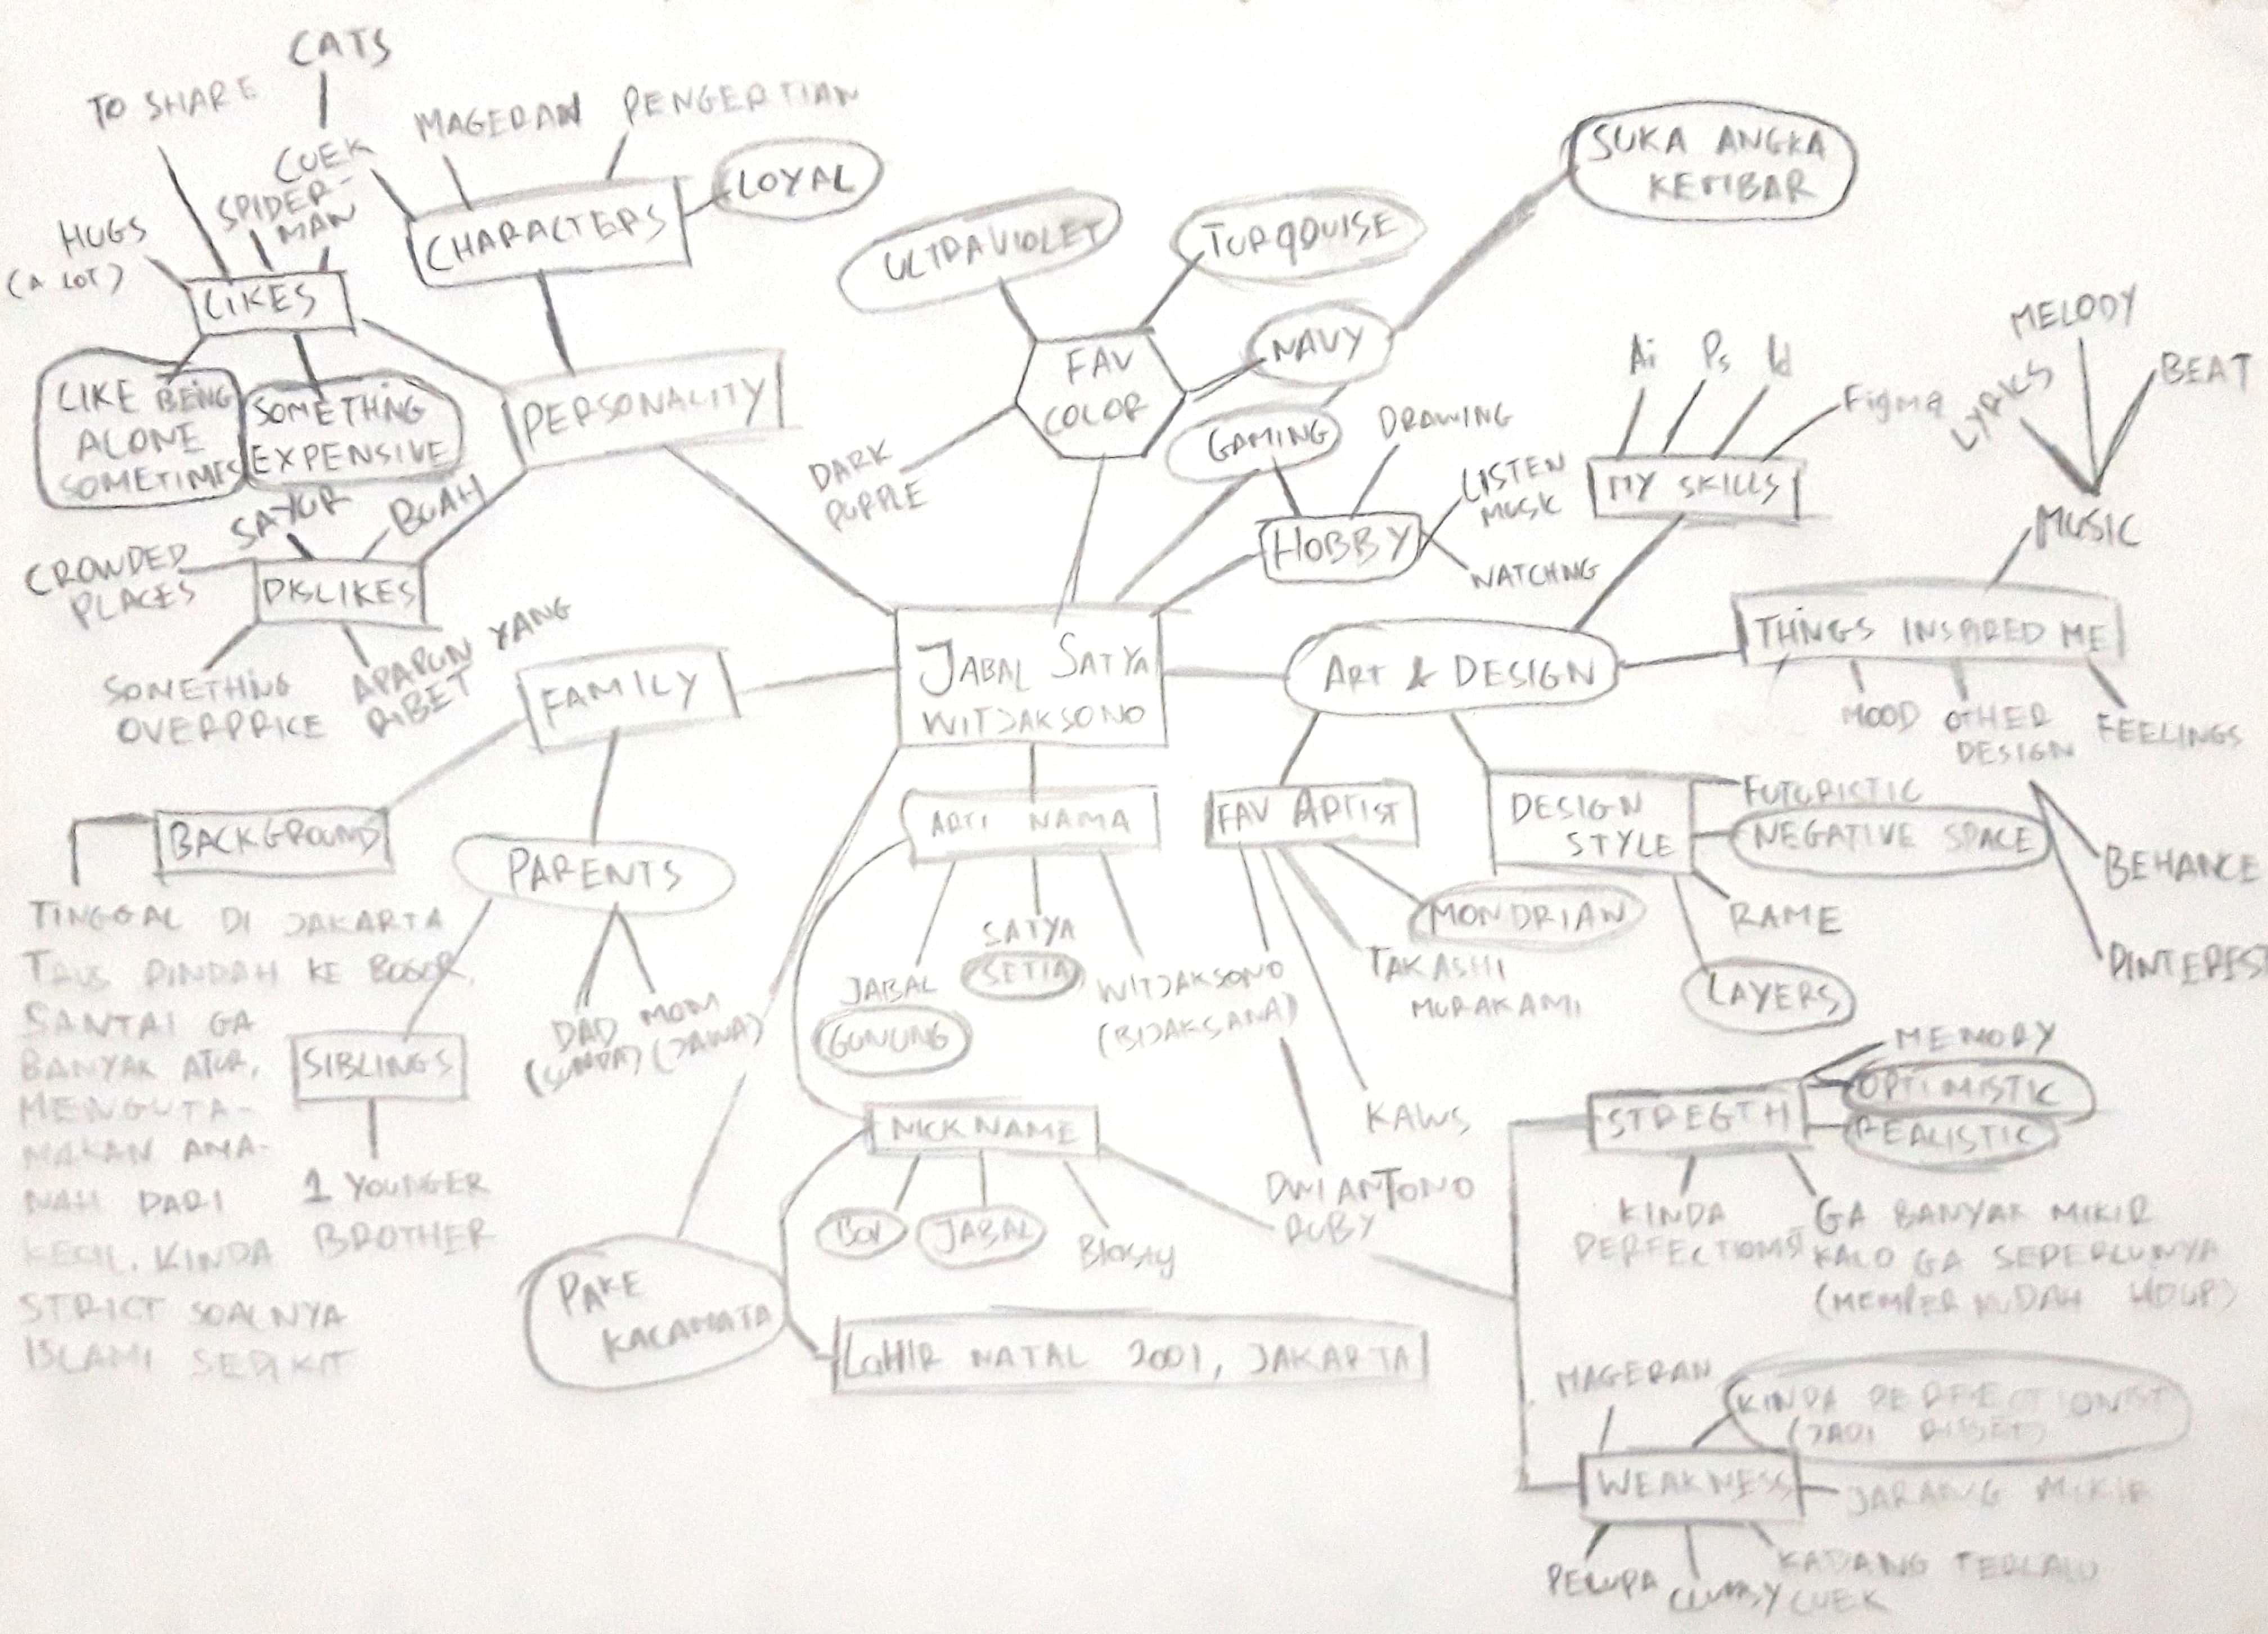 CATS
TO SHARE
CUEK
SPIDER-
MAN
HUGS
(A LOT)
LIKES
LIKE BEING
ALONE
SOMETIMES
SOMETHING
EXPENSIVE
MAGERAN
PENGERTIAN
LOYAL
CHARACTERS
PERSONALITY
SAYUR
BUAH
CROWDED
PLACES
DISLIKES
SOMETHING
OVERPRICE
APAPUN YANG
RIBET
ULTRAVIOLET
TURQOUISE
NAVY
SUKA ANGKA
KEMBAR
FAV
COLOR
DARK
PURPLE
GAMING
DRAWING
LISTEN
MUSIK
WATCHNG
HOBBY
Ai
Ps
Id
Figma
MY SKILLS
LYRICS
MELODY
BEAT
MUSIC
THINGS INSPIRED ME
MOOD
OTHER
DESIGN
FEELINGS
BEHANCE
PINTEREST
JABAL SATYA
WITJAKSONO
ART & DESIGN
FAMILY
BACKGROUND
TINGGAL DI JAKARTA
TRUS PINDAH KE BOGOR,
SANTAI GA
BANYAK ATUR,
MENGUTA-
MAKAN AMA-
NAH DARI
KECIL. KINDA
STRICT SOALNYA
ISLAMI SEDIKIT
PARENTS
DAD
(SUNDA)
MOM
(JAWA)
SIBLINGS
1 YOUNGER
BROTHER
ARTI NAMA
JABAL
GUNUNG
SATYA
SETIA
WITJAKSONO
(BIJAKSANA)
FAV ARTIST
MONDRIAN
TAKASHI
MURAKAMI
KAWS
DWI ANTONO
RUBY
DESIGN
STYLE
FUTURISTIC
NEGATIVE SPACE
RAME
LAYERS
NICKNAME
JABAL
PAKE
KACAMATA
LAHIR NATAL 2001, JAKARTA
STREGTH
MEMORY
OPTIMISTIC
REALISTIC
KINDA
GA BANYAK MIKIR
KALO GA SEPERLUNYA
(MEMPERMUDAH HIDUP)
WEAKNESS
MAGERAN
KINDA PERFECTIONIST
(JADI RIBET)
JARANG MIKIR
PELUPA
CLUMSY
KADANG TERLALU
CUEK